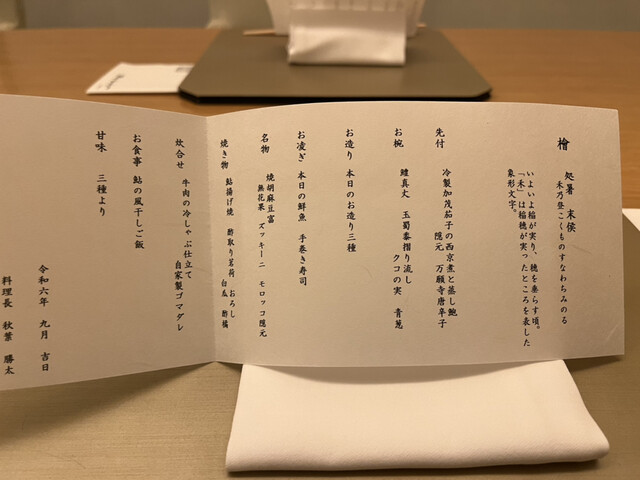 檜
処暑 末侯
禾乃登こくものすなわちみのる
いよいよ稲が実り、穂を垂らす頃。
「禾」は稲穂が実ったところを表した
象形文字。
先付
冷製加茂茄子の西京煮と蒸し鮑
隠元 万願寺唐辛子
お椀
鱧真丈 玉蜀黍摺り流し
クコの実 青葱
お造り 本日のお造り三種
お凌ぎ 本日の鮮魚 手巻き寿司
名物
焼胡麻豆富
無花果 ズッキーニ モロッコ隠元
焼き物
鮎揚げ焼 酢取り茗荷 おろし
白瓜 酢橘
炊合せ
牛肉の冷しゃぶ仕立て
自家製ゴマダレ
お食事 鮎の風干しご飯
甘味 三種より
令和六年 九月 吉日
料理長 秋葉 勝太